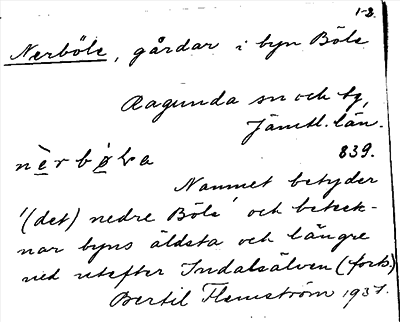 1-2.
Nerböle, gårdar i byn Böle
Ragunda sn och tg,
Jämtl. län.
nèrbø̀la 839.
Namnet betyder
'(det) nedre Böle' och beteck-
nar byns äldsta och längre
ned utefter Indalsälven (forts.)
Bertil Flemström 1931.